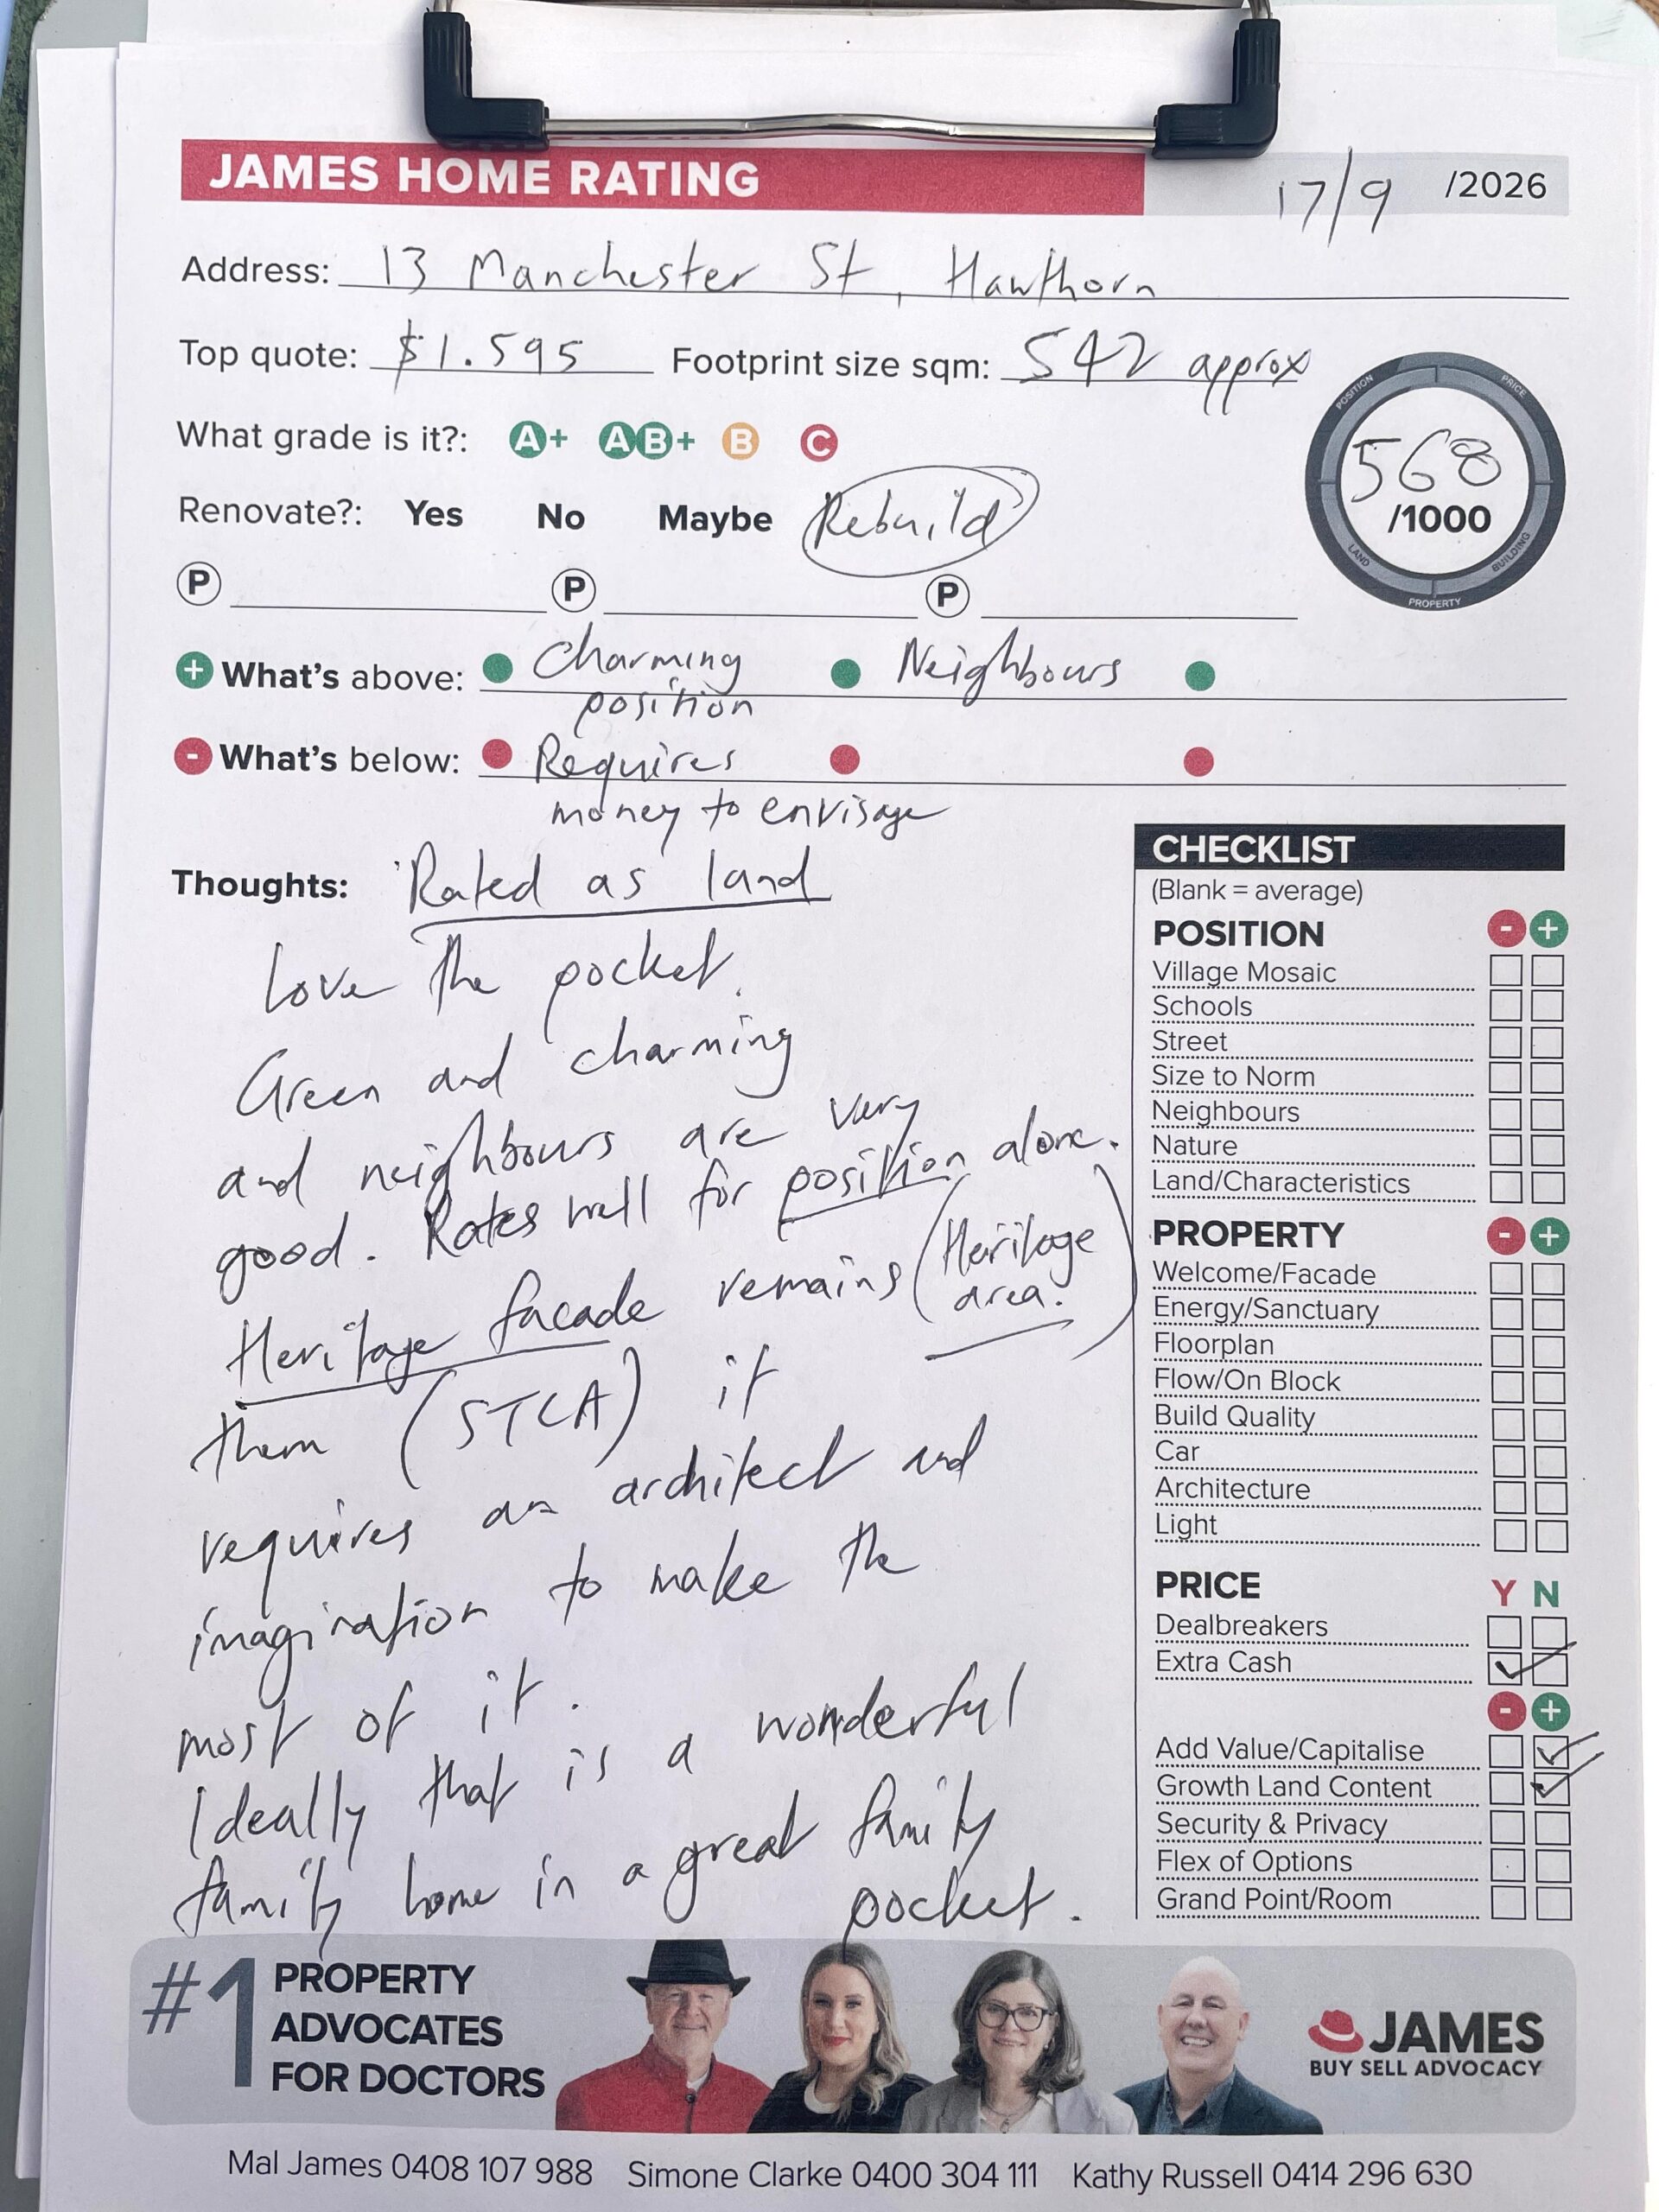 JAMES HOME RATING
17/9 /2026
Address: 13 Manchester St, Hawthorn
Top quote: $1.595 Footprint size sqm: 542 approx
What grade is it?: A+ AB+ B C
568
/1000
POSITION PRICE BUILDING PROPERTY LAND
Renovate?: Yes No Maybe Rebuild
P P P
+ What's above: Charming Neighbours
position
- What's below: Requires
money to envisage
Thoughts: Rated as land
Love the pocket.
Green and charming
and neighbours are very
good. Rates well for position alone.
Heritage facade remains (Heritage
area.)
them (STCA) it
requires an architect and
imagination to make the
most of it.
Ideally that is a wonderful
family home in a great family
pocket.
CHECKLIST
(Blank = average)
POSITION - +
Village Mosaic
Schools
Street
Size to Norm
Neighbours
Nature
Land/Characteristics
PROPERTY - +
Welcome/Facade
Energy/Sanctuary
Floorplan
Flow/On Block
Build Quality
Car
Architecture
Light
PRICE Y N
Dealbreakers
Extra Cash
- +
Add Value/Capitalise
Growth Land Content
Security & Privacy
Flex of Options
Grand Point/Room
#1 PROPERTY
ADVOCATES
FOR DOCTORS
JAMES
BUY SELL ADVOCACY
Mal James 0408 107 988 Simone Clarke 0400 304 111 Kathy Russell 0414 296 630